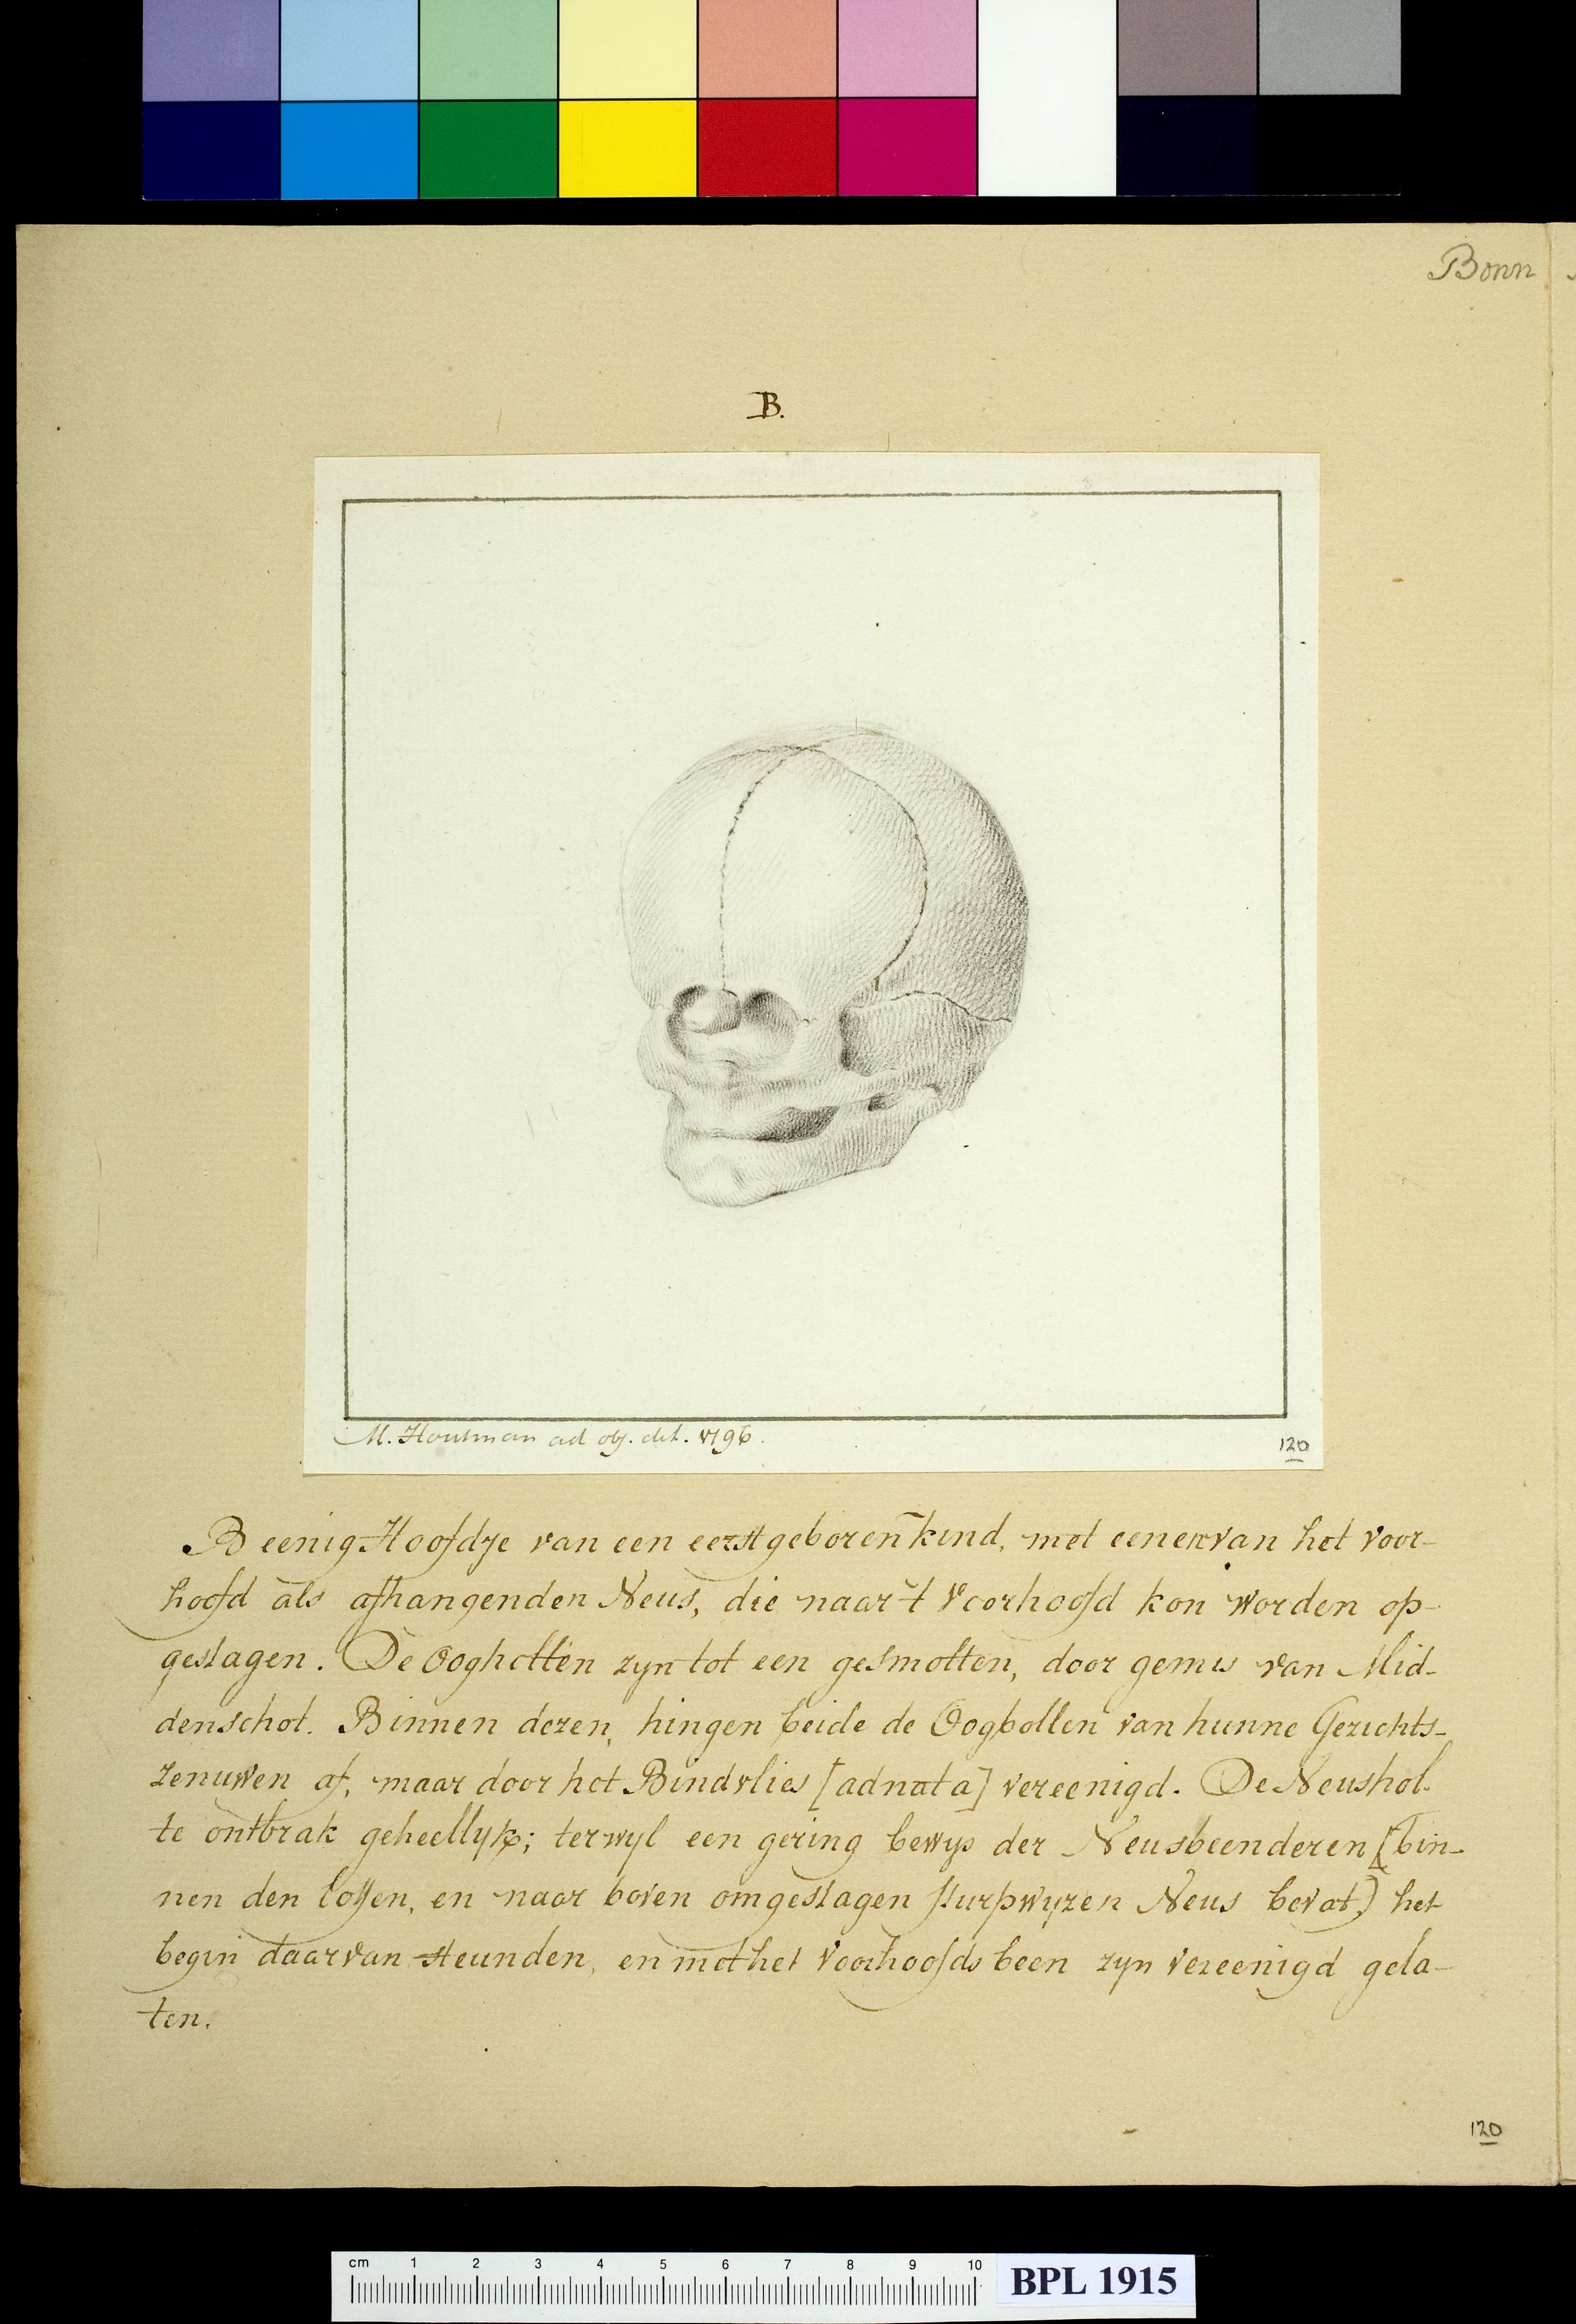 Bonn
B.
M. Houtman ad obj. del. 1796.
120
Beenig Hoofdje van een eerstgeboren kind, met eenen van het voor-
hoofd als afhangenden Neus, die naar 't Voorhoofd kon worden op-
geslagen. De Oogholten zyn tot een gesmolten, door gemis van Mid-
denschot. Binnen dezen, hingen beide de Oogbollen van hunne Gezichts-
zenuwen af, maar door het Bindvlies [adnata] vereenigd. De Neushol-
te ontbrak geheellyk; terwyl een gering bewys der Neusbeenderen [bin-
nen den lossen, en naar boven omgeslagen slurpwyzen Neus bevat) het
begin daarvan steunden, en met het Voorhoofdsbeen zyn vereenigd gela-
ten.
120
cm 1 2 3 4 5 6 7 8 9 10
BPL 1915